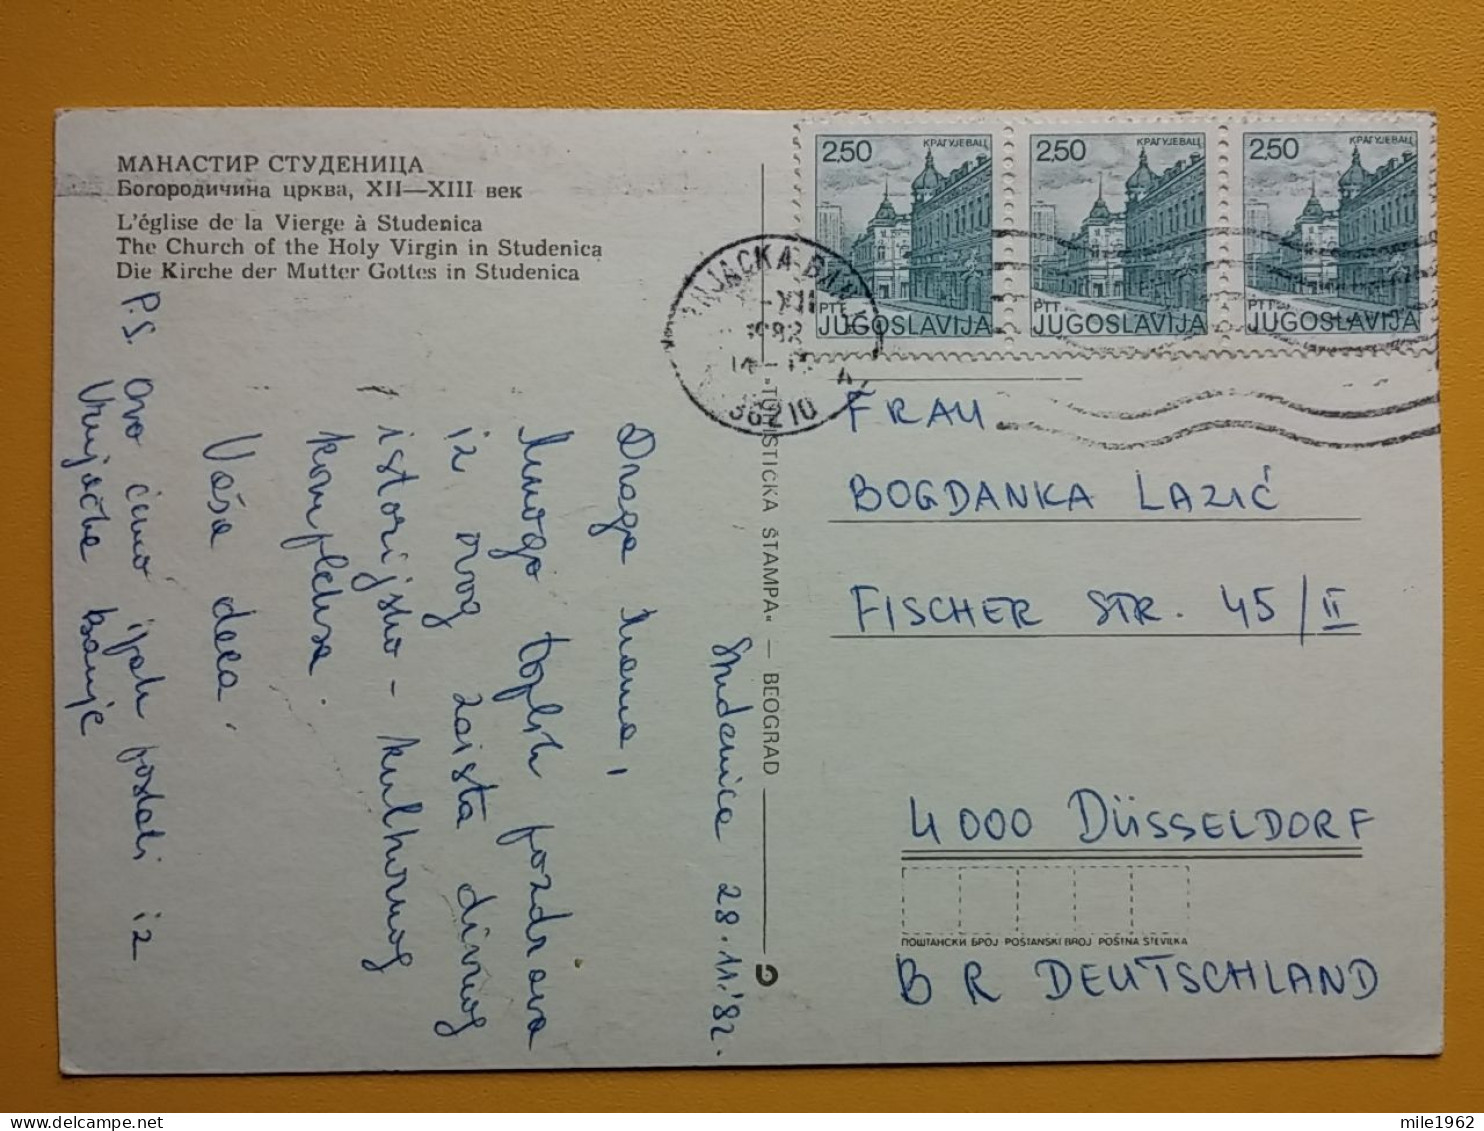 МАНАСТИР СТУДЕНИЦА
Богородичина црква, XII—XIII век
L'église de la Vierge à Studenica
The Church of the Holy Virgin in Studenica
Die Kirche der Mutter Gottes in Studenica
Studenica 28.11.'82.
Draga Mama,
Mnogo toplih pozdrava
iz ovog zaista divnog
istorijsko - kulturnog
kompleksa.
Vaša deca.
P.S. Ovo ćemo ipak poslati iz
Vrnjačke Banje
"TURISTICKA ŠTAMPA" — BEOGRAD
2,50 КРАГУЈЕВАЦ
PTT JUGOSLAVIJA
2,50 КРАГУЈЕВАЦ
PTT JUGOSLAVIJA
2,50 КРАГУЈЕВАЦ
PTT JUGOSLAVIJA
VRNJAČKA BANJA
XII
1982
14
36210
FRAU
BOGDANKA LAZIĆ
FISCHER STR. 45/II
4000 DÜSSELDORF
ПОШТАНСКИ БРОЈ POŠTANSKI BROJ POŠTNA ŠTEVILKA
B R DEUTSCHLAND
mile1962